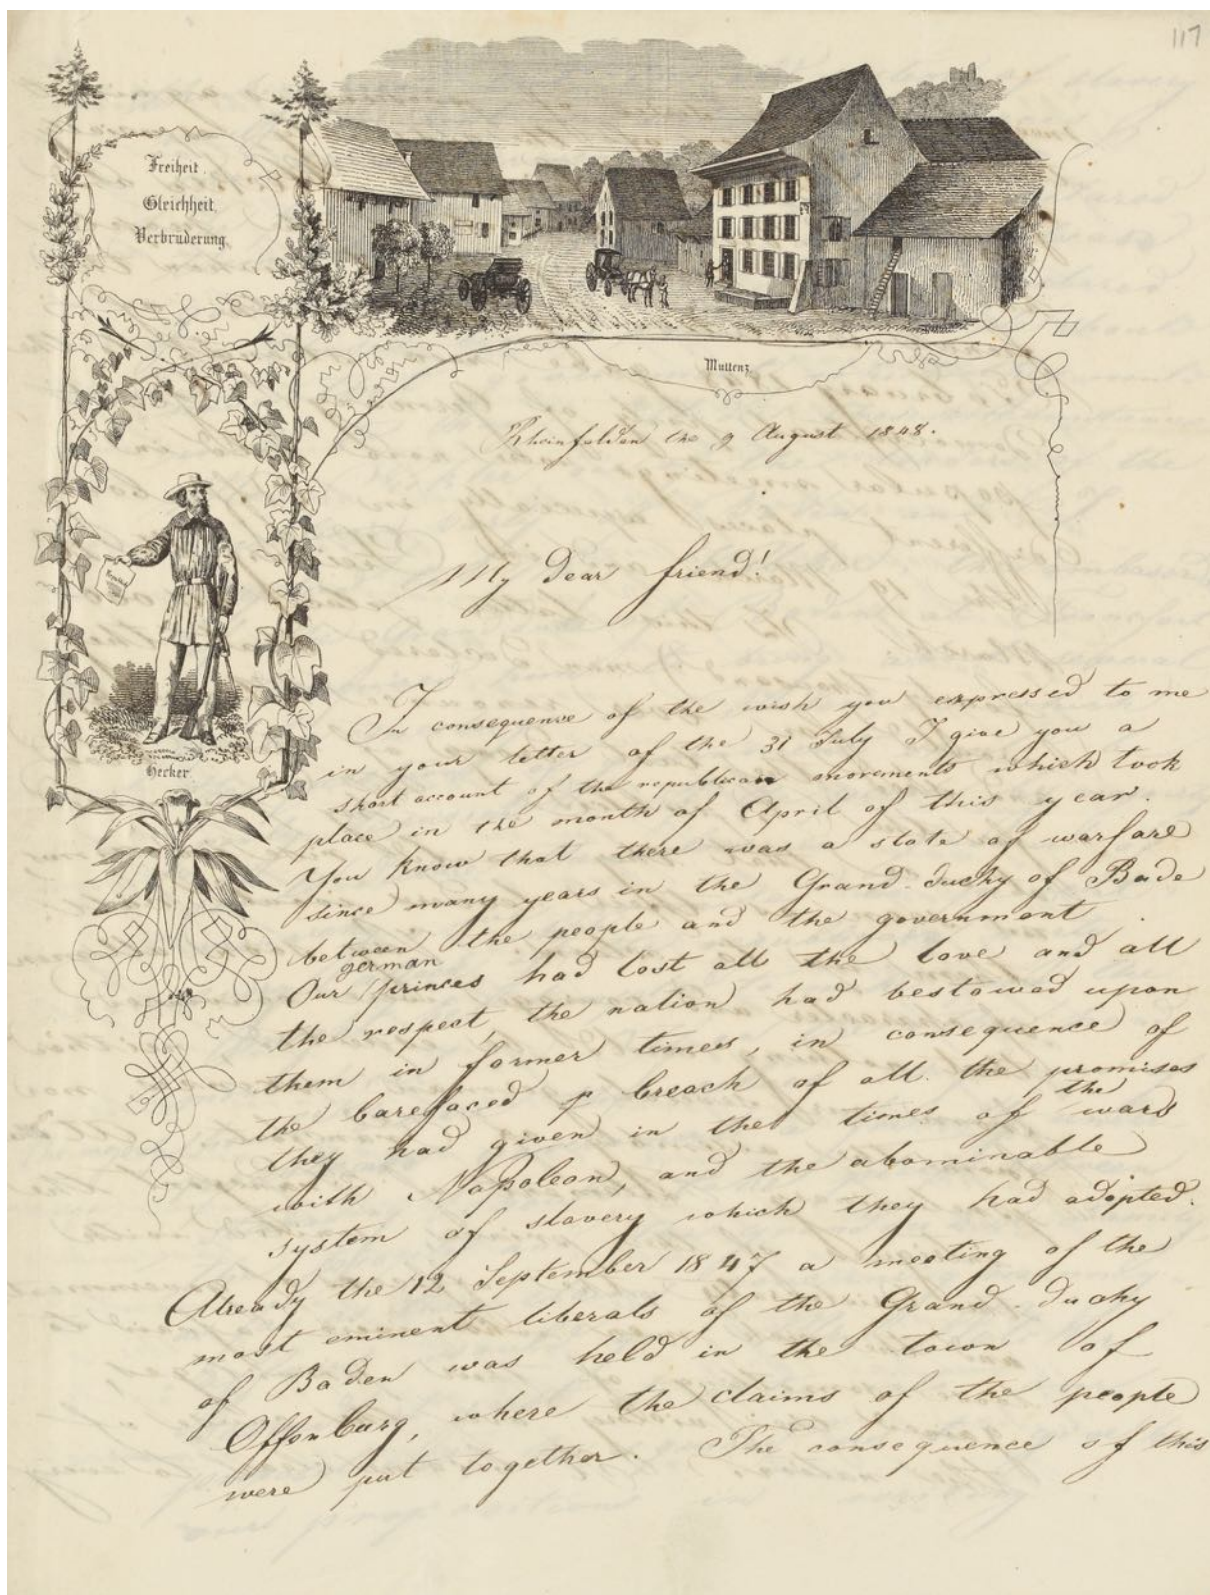 117
Freiheit.
Gleichheit.
Verbruderung.
Muttenz
Rheinfelden the 9 August 1848.
My dear friend!
Hecker
In consequence of the wish you expressed to me
in your letter of the 31 July I give you a
short account of the republican movements which took
place in the month of April of this year.
You know that there was a state of warfare
since many years in the Grand-duchy of Bade
between the people and the government.
german
Our princes had lost all the love and all
the respect, the nation had bestowed upon
them in former times, in consequence of
the barefaced p breach of all the promises
the
they had given in the times of wars
with Napoleon, and the abominable
system of slavery which they had adopted.
Already the 12 September 1847 a meeting of the
most eminent liberals of the Grand-duchy
of Baden was held in the town of
Offenburg, where the claims of the people
were put together. The consequence of this